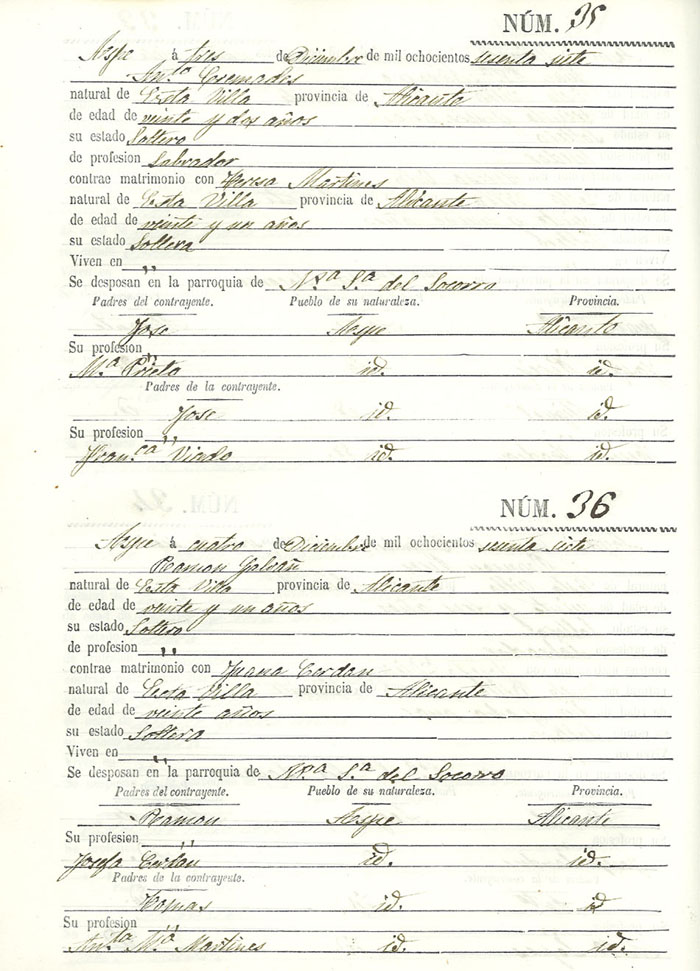 NÚM. 35
Aspe á tres de Diciembre de mil ochocientos sesenta siete
Ant.º Cremades
natural de Esta Villa provincia de Alicante
de edad de veinte y dos años
su estado Soltero
de profesion Labrador
contrae matrimonio con Teresa Martines
natural de Esta Villa provincia de Alicante
de edad de veinte y un años
su estado Soltera
Viven en ,,
Se desposan en la parroquia de Nra Sª del Socorro
Padres del contrayente. Pueblo de su naturaleza. Provincia.
Jose Aspe Alicante
Su profesion ,,
Mª Prieto id. id.
Padres de la contrayente.
Jose id. id.
Su profesion ,,
Fran.ca id. id.
NÚM. 36
Aspe á cuatro de Diciembre de mil ochocientos sesenta siete
Ramon Galvañ
natural de Esta Villa provincia de Alicante
de edad de veinte y un años
su estado Soltero
de profesion ,,
contrae matrimonio con Juana Cerdan
natural de Esta Villa provincia de Alicante
de edad de veinte años
su estado Soltera
Viven en ,,
Se desposan en la parroquia de Nra Sª del Socorro
Padres del contrayente. Pueblo de su naturaleza. Provincia.
Ramon Aspe Alicante
Su profesion ,,
Josefa Cerdan id. id.
Padres de la contrayente.
Tomas id. id
Su profesion ,,
Ant.ta Mª Martines id. id.